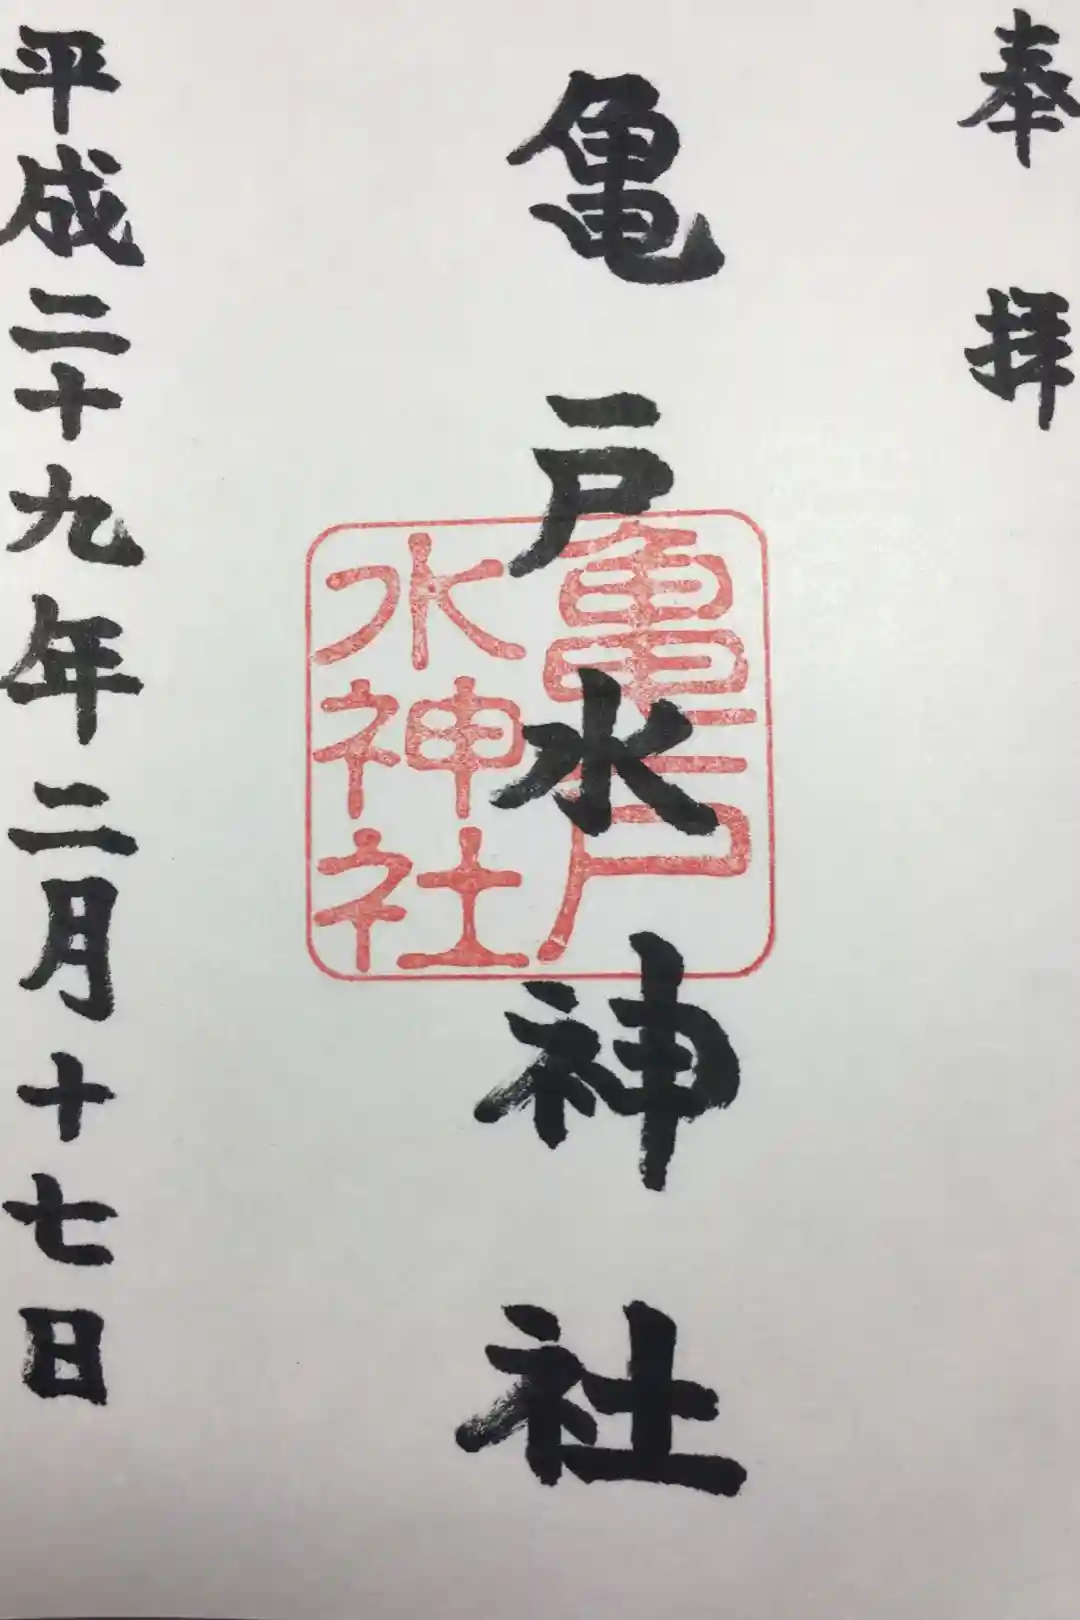 奉拝
亀戸水神社
亀戸
水神社
平成二十九年二月十七日